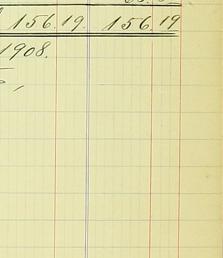 156.19 156.19
1908.